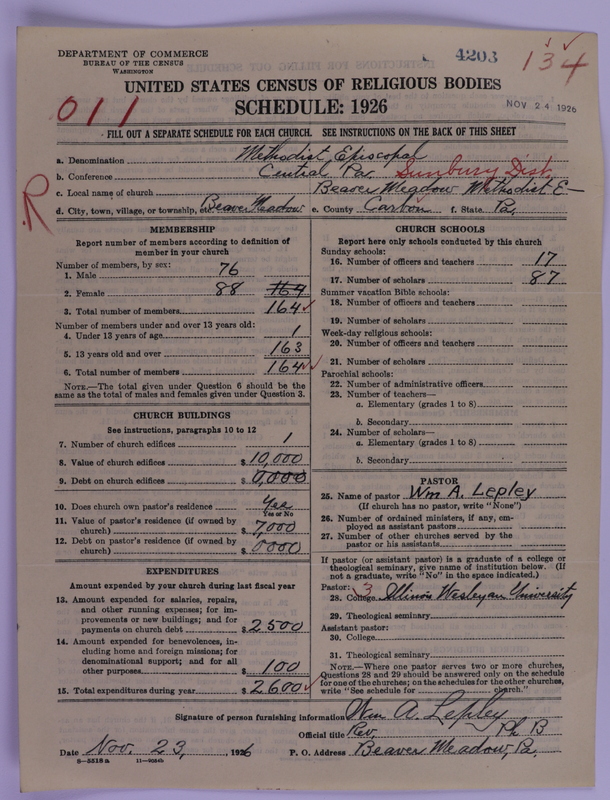 DEPARTMENT OF COMMERCE
BUREAU OF THE CENSUS
WASHINGTON
4203
134
UNITED STATES CENSUS OF RELIGIOUS BODIES
SCHEDULE: 1926
NOV 24 1926
011
FILL OUT A SEPARATE SCHEDULE FOR EACH CHURCH. SEE INSTRUCTIONS ON THE BACK OF THIS SHEET
a. Denomination Methodist Episcopal
b. Conference Central Pa. Sunbury Dist.
c. Local name of church Beaver Meadow Methodist E—
R
d. City, town, village, or township, etc. Beaver Meadow e. County Carbon f. State Pa.
MEMBERSHIP
Report number of members according to definition of
member in your church
Number of members, by sex:
1. Male 76
2. Female 88 164
3. Total number of members 164
Number of members under and over 13 years old:
4. Under 13 years of age 1
5. 13 years old and over 163
6. Total number of members 164
NOTE.—The total given under Question 6 should be the
same as the total of males and females given under Question 3.
CHURCH BUILDINGS
See instructions, paragraphs 10 to 12
7. Number of church edifices 1
8. Value of church edifices $ 10,000
9. Debt on church edifices $ 0,000
10. Does church own pastor's residence Yes
Yes or No
11. Value of pastor's residence (if owned by
church) $ 7,000
12. Debt on pastor's residence (if owned by
church) $ 0000
EXPENDITURES
Amount expended by your church during last fiscal year
13. Amount expended for salaries, repairs,
and other running expenses; for im-
provements or new buildings; and for
payments on church debt $ 2500
14. Amount expended for benevolences, in-
cluding home and foreign missions; for
denominational support; and for all
other purposes $ 100
15. Total expenditures during year $ 2,600
CHURCH SCHOOLS
Report here only schools conducted by this church
Sunday schools:
16. Number of officers and teachers 17
17. Number of scholars 87
Summer vacation Bible schools:
18. Number of officers and teachers
19. Number of scholars
Week-day religious schools:
20. Number of officers and teachers
21. Number of scholars
Parochial schools:
22. Number of administrative officers
23. Number of teachers—
a. Elementary (grades 1 to 8)
b. Secondary
24. Number of scholars—
a. Elementary (grades 1 to 8)
b. Secondary
PASTOR
25. Name of pastor Wm A. Lepley
(If church has no pastor, write "None")
26. Number of ordained ministers, if any, em-
ployed as assistant pastors
27. Number of other churches served by the
pastor or his assistants
If pastor (or assistant pastor) is a graduate of a college or
theological seminary, give name of institution below. (If
not a graduate, write "No" in the space indicated.)
Pastor: 3
28. College Illinois Wesleyan University
29. Theological seminary
Assistant pastor:
30. College
31. Theological seminary
NOTE.—Where one pastor serves two or more churches,
Questions 28 and 29 should be answered only on the schedule
for one of the churches; on the schedules for the other churches,
write "See schedule for church."
Signature of person furnishing information Wm A. Lepley
Official title Rev. Ph B
Date Nov. 23, , 1926 P. O. Address Beaver Meadow, Pa.
8—5518a 11—9054b